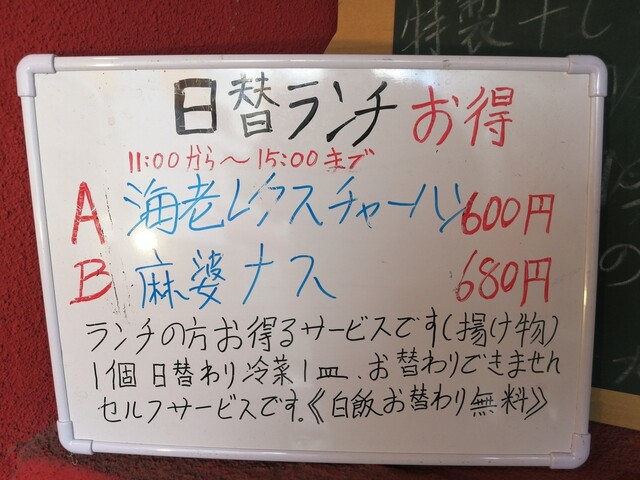 日替ランチ お得
11:00から〜15:00まで
A 海老レタスチャーハン 600円
B 麻婆ナス 680円
ランチの方お得るサービスです(揚げ物)
1個 日替わり冷菜1皿、お替わりできません
セルフサービスです。《白飯お替わり無料》
特製
の